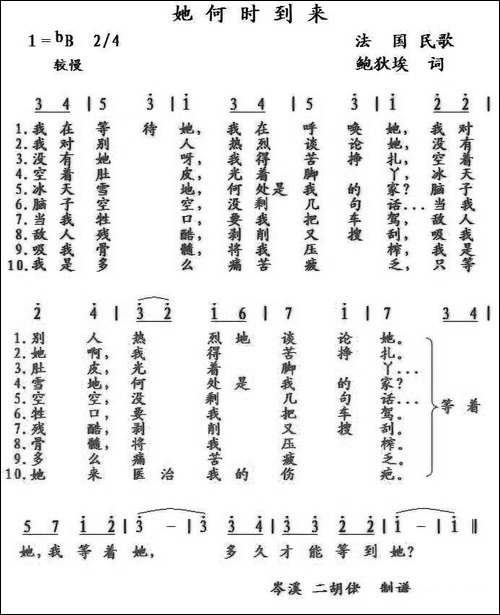 她何时到来
1=bB 2/4 法国民歌
较慢 鲍狄埃 词
3 4 | 5 3 | 1 3 4 | 5 3 | 1 2 2 |
1.我在等待她,我在呼唤她,我对
2.我对别人热烈谈论她,没有
3.没有她呀,我得苦挣扎,空着
4.空着肚皮,光着脚丫,冰天
5.冰天雪地,何处是我的家?脑子
6.脑子空空,没剩几句话...当我
7.当我牲口,要我把车驾,敌人
8.敌人残酷,剥削又搜刮,吸我
9.吸我骨髓,将我压榨,我是
10.我是多么痛苦疲乏,只等
2 4 | 3 2 1 6 | 7 1 | 7 3 4 |
1.别人热烈地谈论她。
2.她啊,我得苦挣扎。
3.肚皮,光着脚丫...
4.雪地,何处是我的家?
5.空空,没剩几句话...
6.牲口,要我把车驾。
7.残酷,剥削又搜刮。
8.骨髓,将我压榨。
9.多么痛苦疲乏。
10.她来医治我的伤疤。
等着
5 7 1 2 | 3 - | 3 2 3 4 | 3 3 2 2 | 1 - | 1 ‖
她,我等着她,多久才能等到她?
岑溪 二胡律 制谱